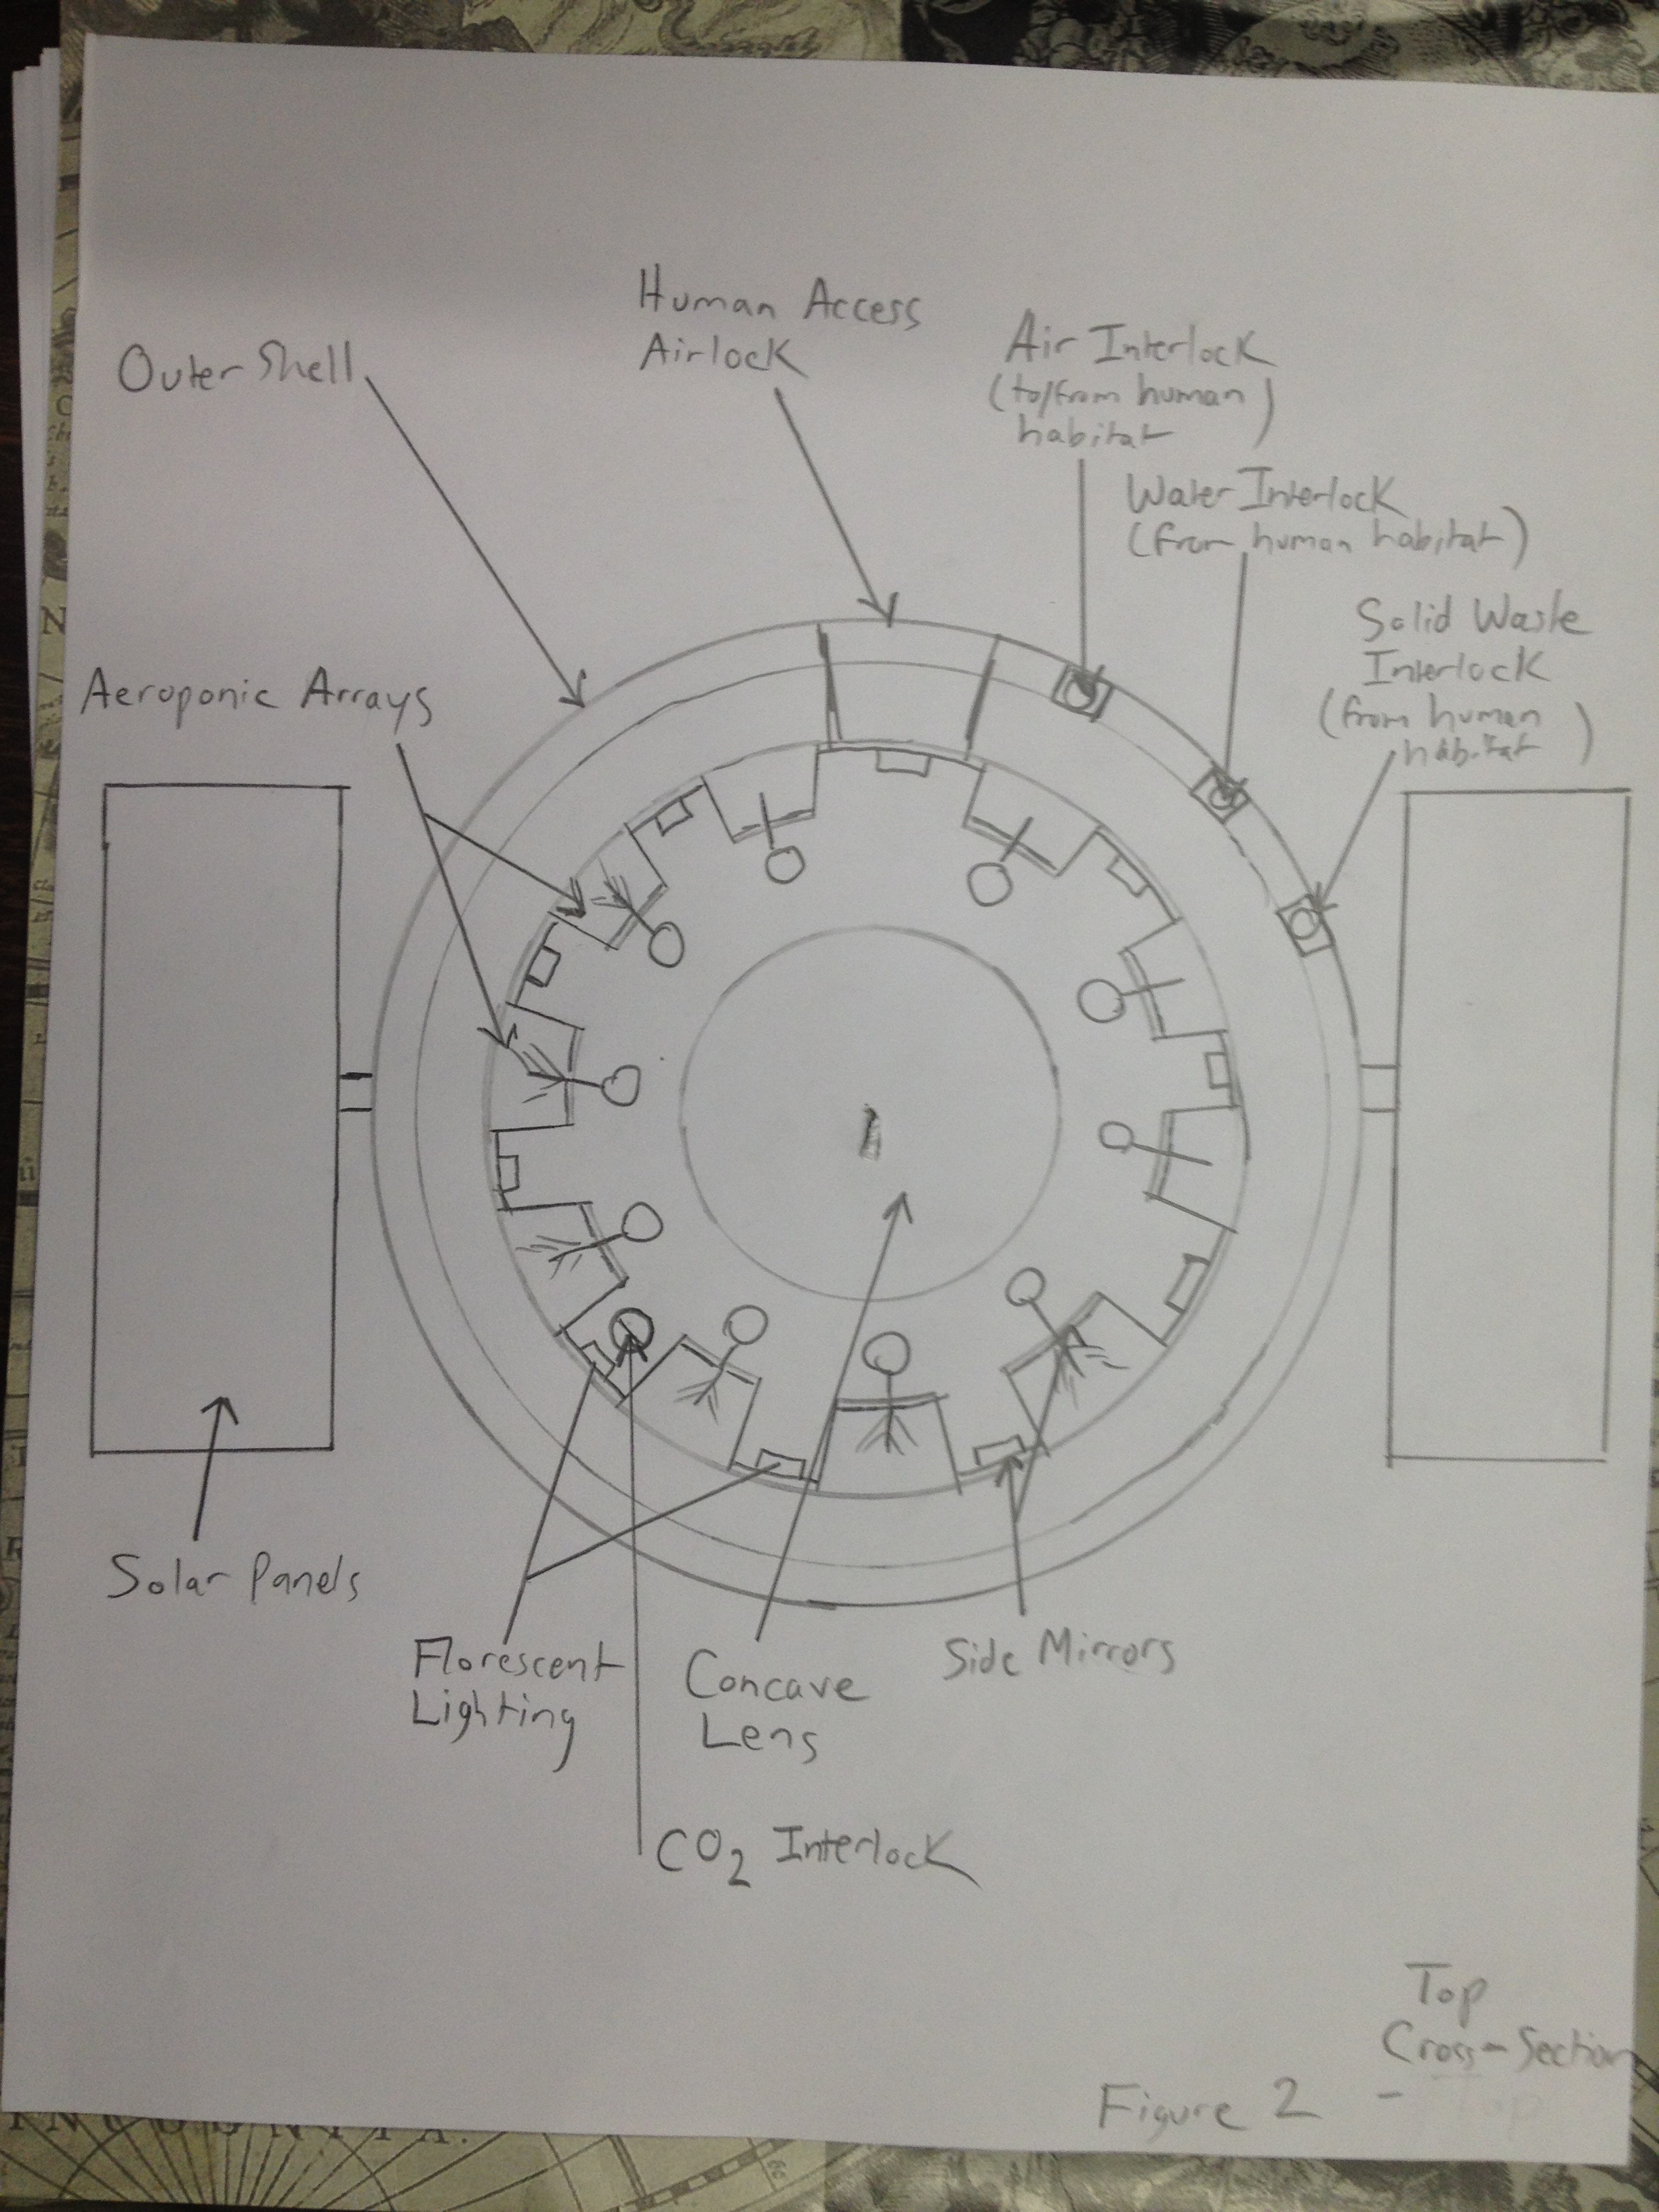 Human Access
Airlock
Outer Shell
Air Interlock
(to/from human)
habitat
Water Interlock
(from human habitat)
Solid Waste
Interlock
(from human
habitat)
Aeroponic Arrays
Solar Panels
Florescent
Lighting
Concave
Lens
Side Mirrors
CO2 Interlock
Top
Cross-Section
Figure 2 -
Top